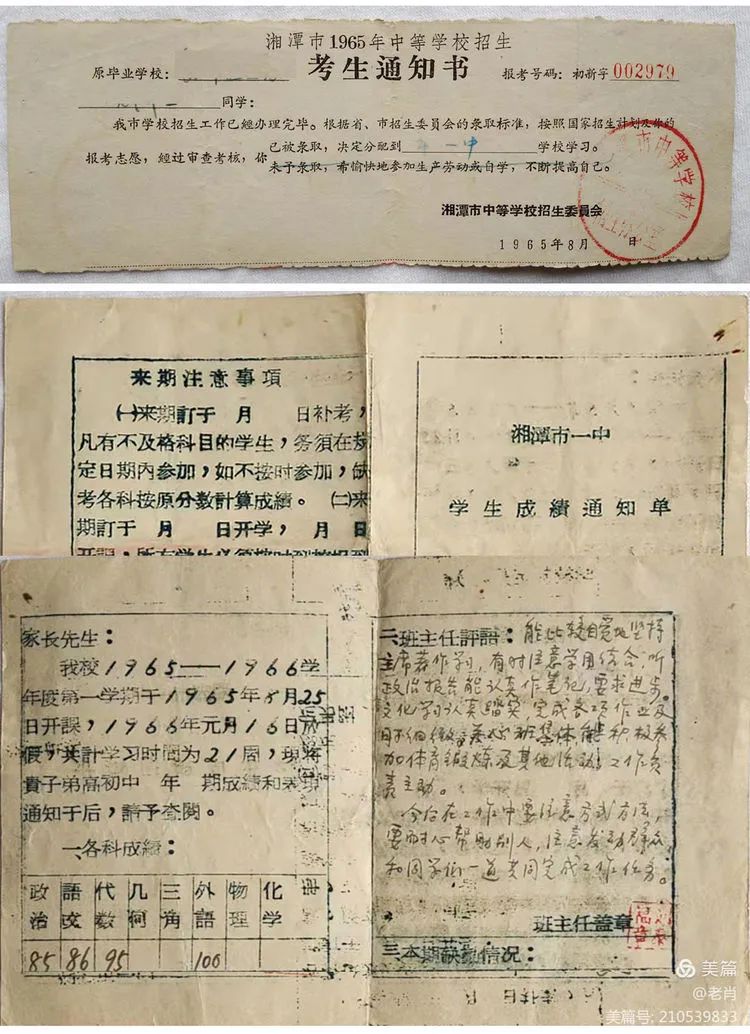 湘潭市1965年中等学校招生
考生通知书
原毕业学校：
报考号码：初新字 002979
同学：
我市学校招生工作已經办理完毕。根据省、市招生委員会的录取标准，按照国家招生計划及你的
报考志愿，經过审查考核，你
已被录取，决定分配到 一中 学校学习。
未予录取，希愉快地参加生产劳动或自学，不断提高自己。
湘潭市中等学校招生委員会
1965年8月 日
来期注意事項
㈠来期訂于 月 日补考，
凡有不及格科目的学生，务須在規
定日期內参加，如不按时参加，缺
考各科按原分数計算成績。㈡来
期訂于 月 日开学， 月 日
开課，所有学生必須按时到校报到
湘潭市一中
学生成績通知单
家长先生：
我校1965——1966学
年度第一学期于1965年8月25
日开課，1966年元月16日放
假，共計学习时間为21周，現将
貴子弟高初中 年 期成績和表現
通知于后，請予查閱。
一、各科成績：
政治 語文 代数 几何 三角 外語 物理 化学
85 86 95 100
二、班主任評語：能比较自觉地坚持
主席著作学习，有时注意学用结合，听
政治报告能认真作笔记，要求进步。
文化学习认真踏实，完成各项作业及
时、细致；关心班集体，能积极参
加体育锻炼及其他活动，工作负
责主动。
今后在工作中要注意方式方法，
要耐心帮助别人，注意发动群众
和同学们一道共同完成工作任务。
班主任盖章
三、本期缺勤情况：
美篇
@老肖
美篇号: 210539833